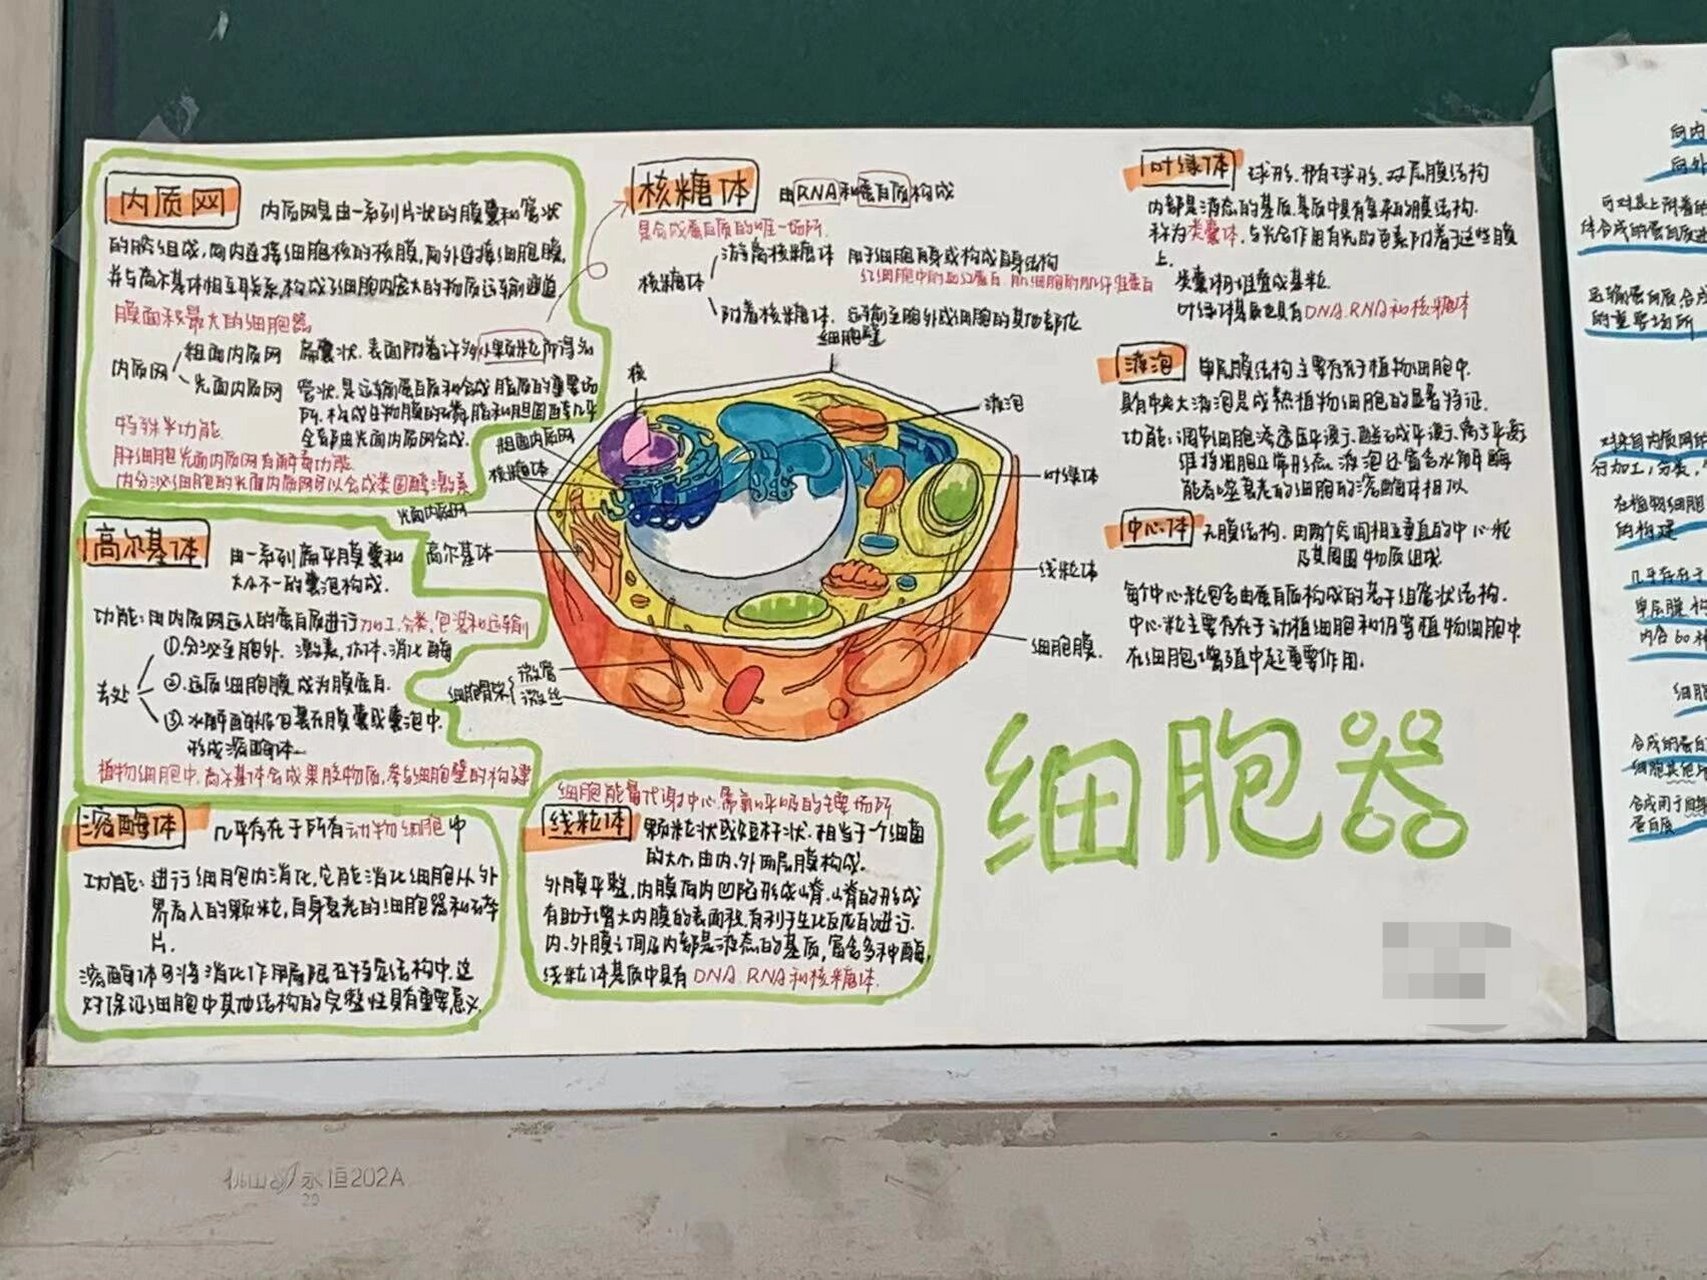 内质网
内质网是由一系列片状的膜囊和管状
的腔组成,网内连接细胞核的核膜,网外连接细胞膜,
并与高尔基体相互联系,构成了细胞内庞大的物质运输通道
膜面积最大的细胞器
内质网
粗面内质网 扁囊状,表面附着许多小颗粒
光面内质网 管状,是运输蛋白质和合成脂质的重要场
所,构成生物膜的磷脂和胆固醇几乎
全部由光面内质网合成.
特殊半功能
肝细胞光面内质网有解毒功能
内分泌细胞的光面内质网可以合成类固醇激素
高尔基体
由一系列扁平膜囊和
大小不一的囊泡构成.
功能:由内质网运入的蛋白质进行加工,分类,包装和运输
去处
①分泌至胞外. 激素,抗体,消化酶
②运质细胞膜成为膜蛋白.
③水解酶被包裹在膜囊或囊泡中,
形成溶酶体
植物细胞中,高尔基体合成果胶物质,参与细胞壁的构建
溶酶体
几乎存在于所有动物细胞中
功能:进行细胞内消化,它能消化细胞从外
界吞入的颗粒,自身衰老的细胞器和碎
片.
溶酶体可将消化作用局限在特定结构中,这
对保证细胞中其他结构的完整性具有重要意义.
核糖体
由RNA和蛋白质构成
是合成蛋白质的唯一场所.
核糖体
游离核糖体 用于细胞自身或构成自身结构
红细胞中的血红蛋白,肌细胞的肌纤维蛋白
附着核糖体. 运输至胞外或细胞的其他部位
细胞壁
核
液泡
粗面内质网
核糖体
光面内质网
高尔基体
叶绿体
线粒体
细胞膜.
细胞骨架
微管
微丝
线粒体
细胞能量代谢中心,需氧呼吸的主要场所
颗粒状或短杆状.相当于一个细菌
的大小,由内、外两层膜构成.
外膜平整,内膜向内凹陷形成嵴.嵴的形成
有助于增大内膜的表面积,有利于生化反应的进行.
内、外膜之间及内部是液态的基质,富含多种酶,
线粒体基质中具有 DNA, RNA和核糖体.
叶绿体
球形,椭球形,双层膜结构
内部是液态的基质,基质中具有复杂的膜结构.
称为类囊体,与光合作用有光的色素附着于这些膜
上.
类囊体堆叠成基粒.
叶绿体基质也具有DNA,RNA和核糖体
液泡
单层膜结构 主要存在于植物细胞中.
具有中央大液泡是成熟植物细胞的显著特征.
功能:调节细胞渗透压平衡、酸碱平衡、离子平衡
维持细胞正常形态.液泡还富含水解酶
能吞噬衰老的细胞的溶酶体相似
中心体
无膜结构. 由两个空间相互垂直的中心粒
及其周围物质组成.
每个中心粒包含由蛋白质构成的若干组管状结构.
中心粒主要存在于动植细胞和低等植物细胞中
在细胞增殖中起重要作用.
细胞器
向内
向外
可对其上附着的
体合成的蛋白质进
运输蛋白质,合成
的重要场所
对来自内质网的
行加工,分类,
在植物细胞
的构建
几乎存在于
单层膜
内含60
细胞
合成的蛋白
细胞其他
合成用于
蛋白质
永恒202A